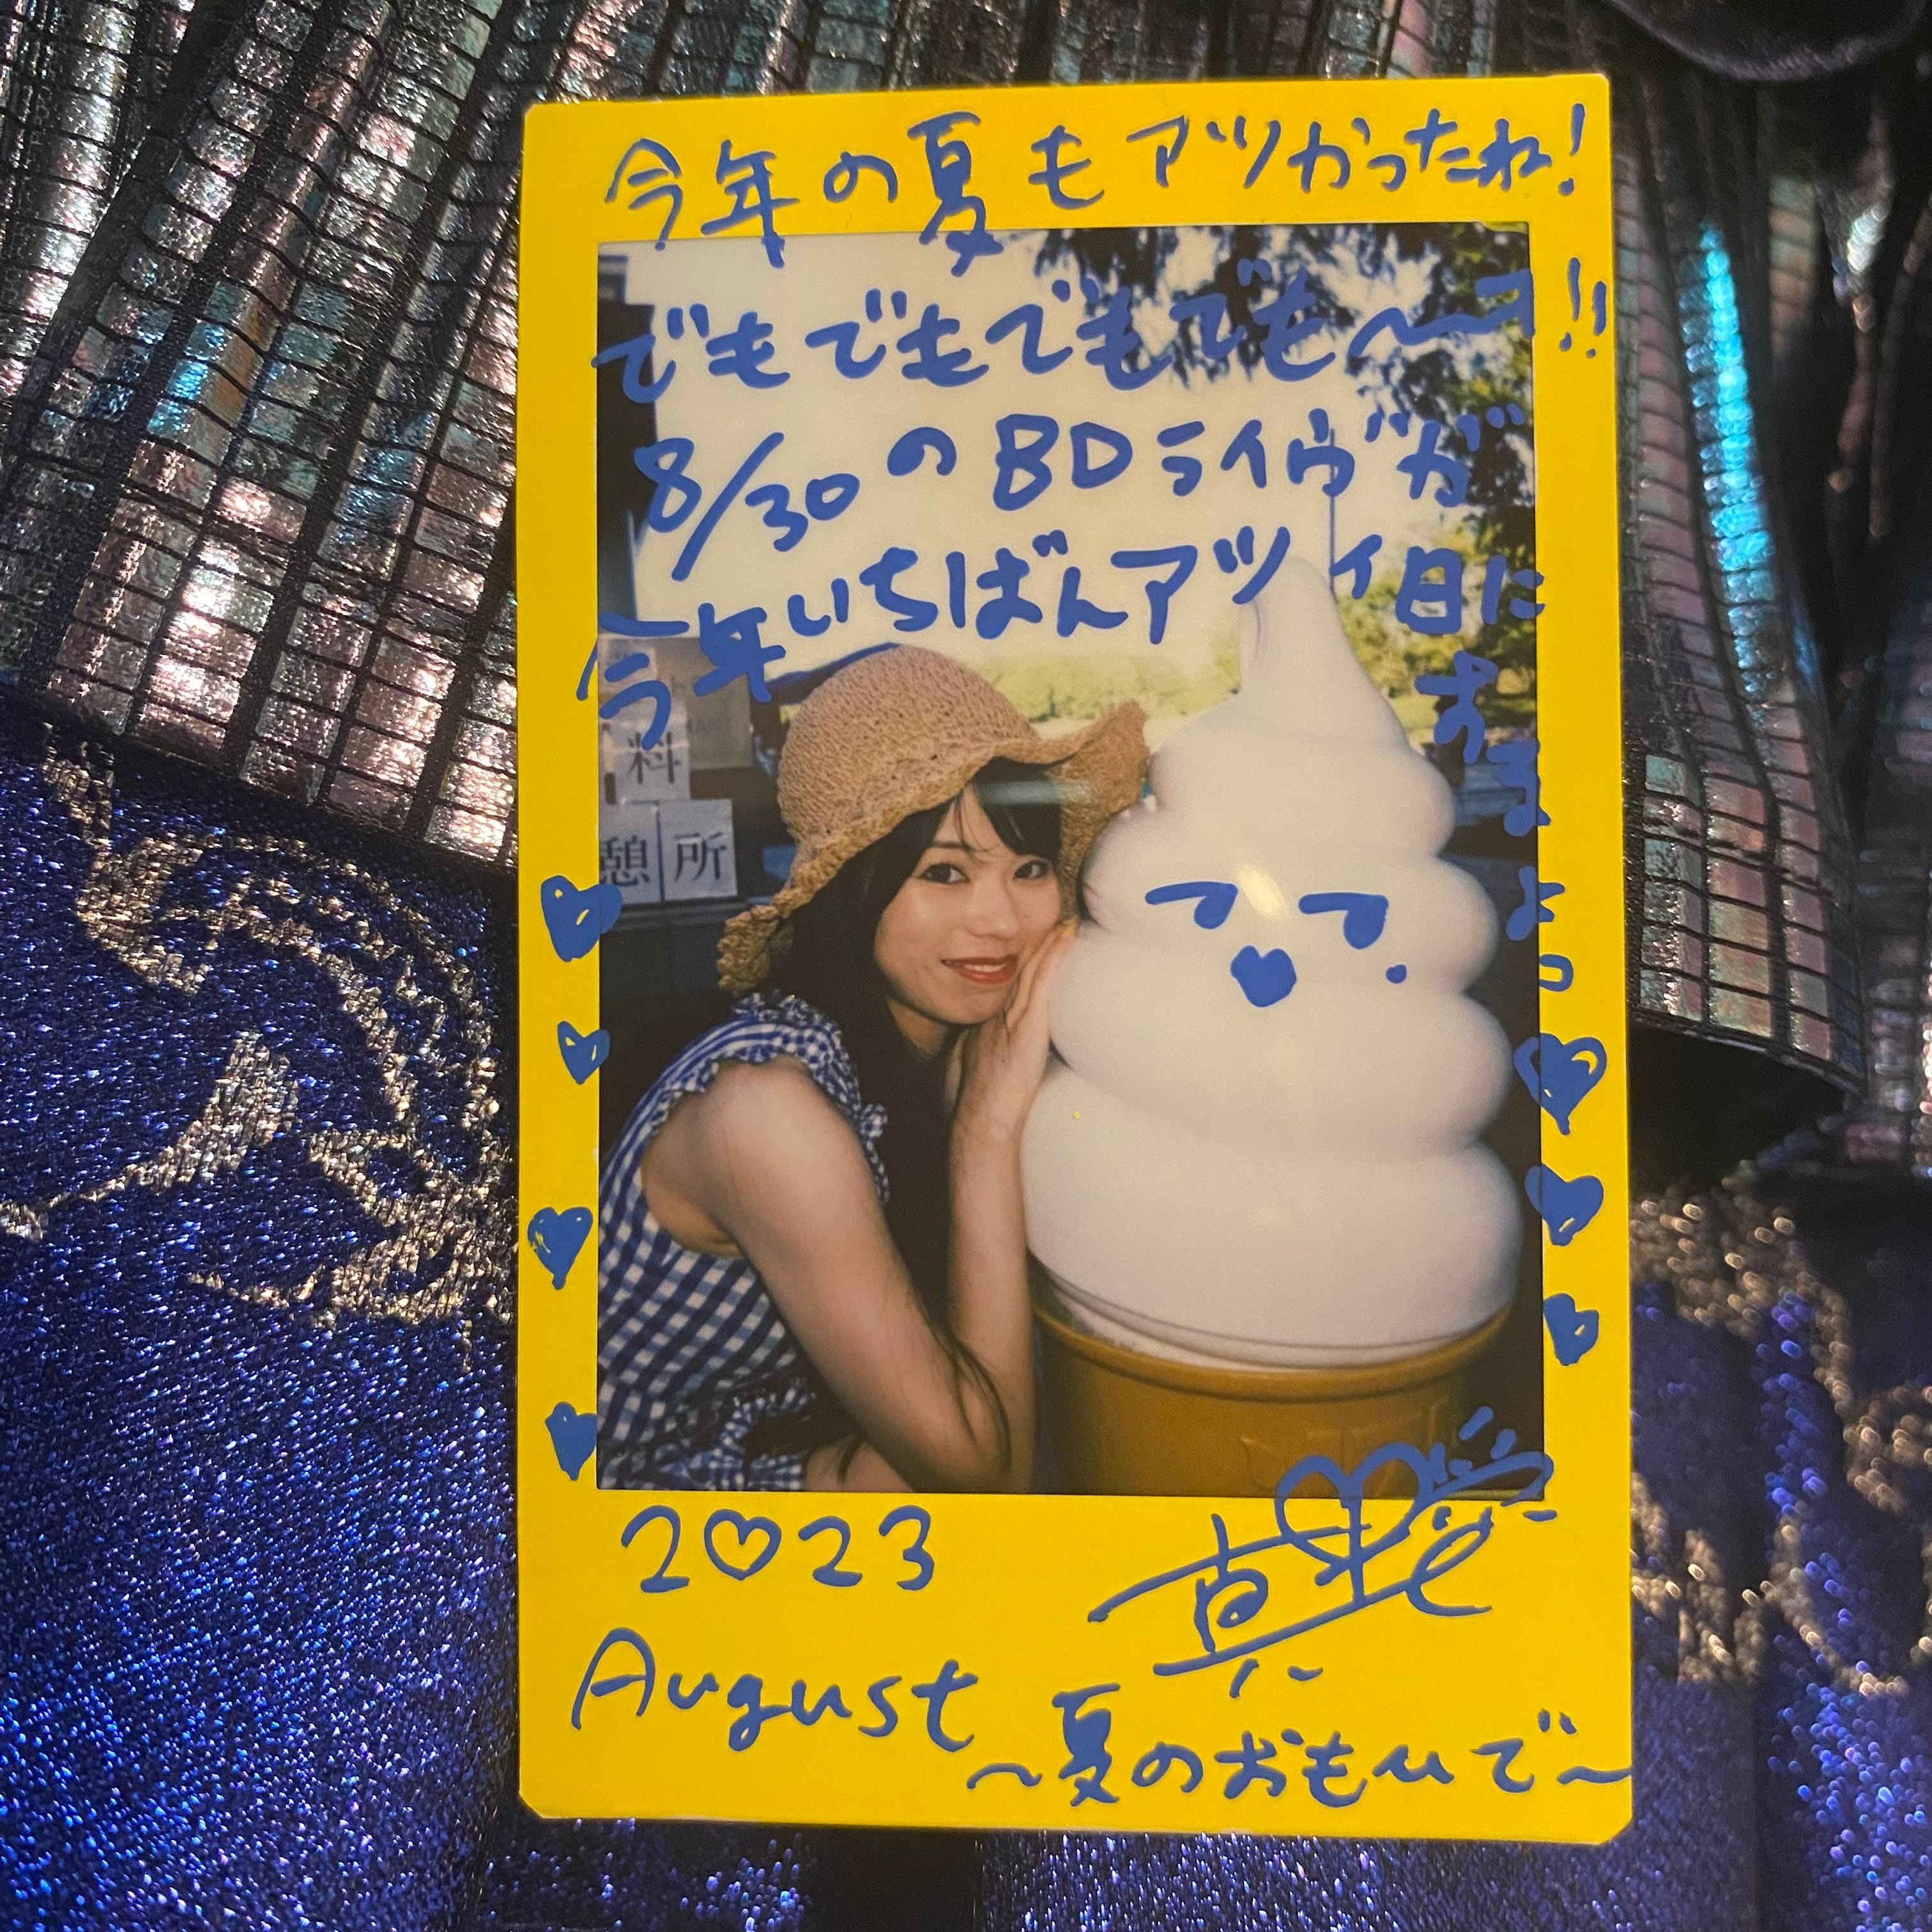 今年の夏もアツかったね!
でもでもでもでも〜ヨ!!
8/30のBDライヴが
今年いちばんアツイ日に
するよ
料
憩所
2♡23
August
〜夏のおもひで〜